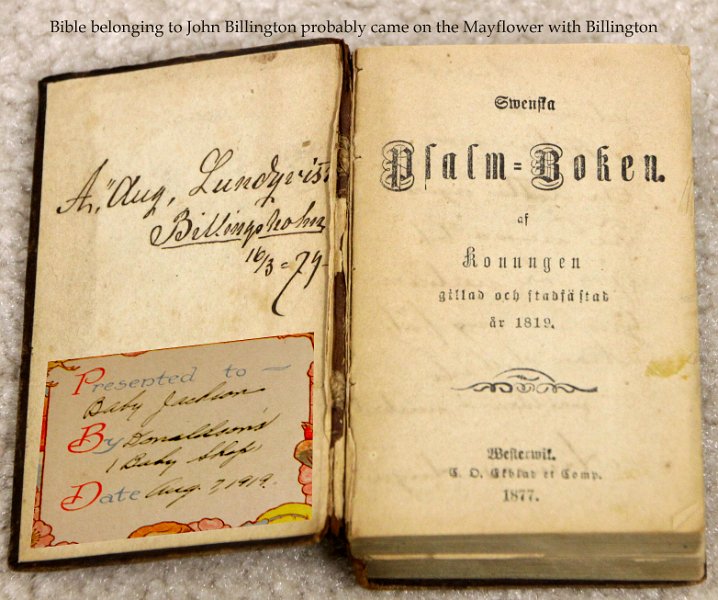 Bible belonging to John Billington probably came on the Mayflower with Billington
A, Aug, Lundqvist
Billingsholm
16/3 = 79
Presented to —
Baby Jackson
By Donaldson's
Baby Shop
Date Aug. 7, 1919.
Swenska
Psalm=Boken.
af
Konungen
gillad och stadfästad
år 1819.
Westerwik.
C. O. Ekblad et Comp.
1877.